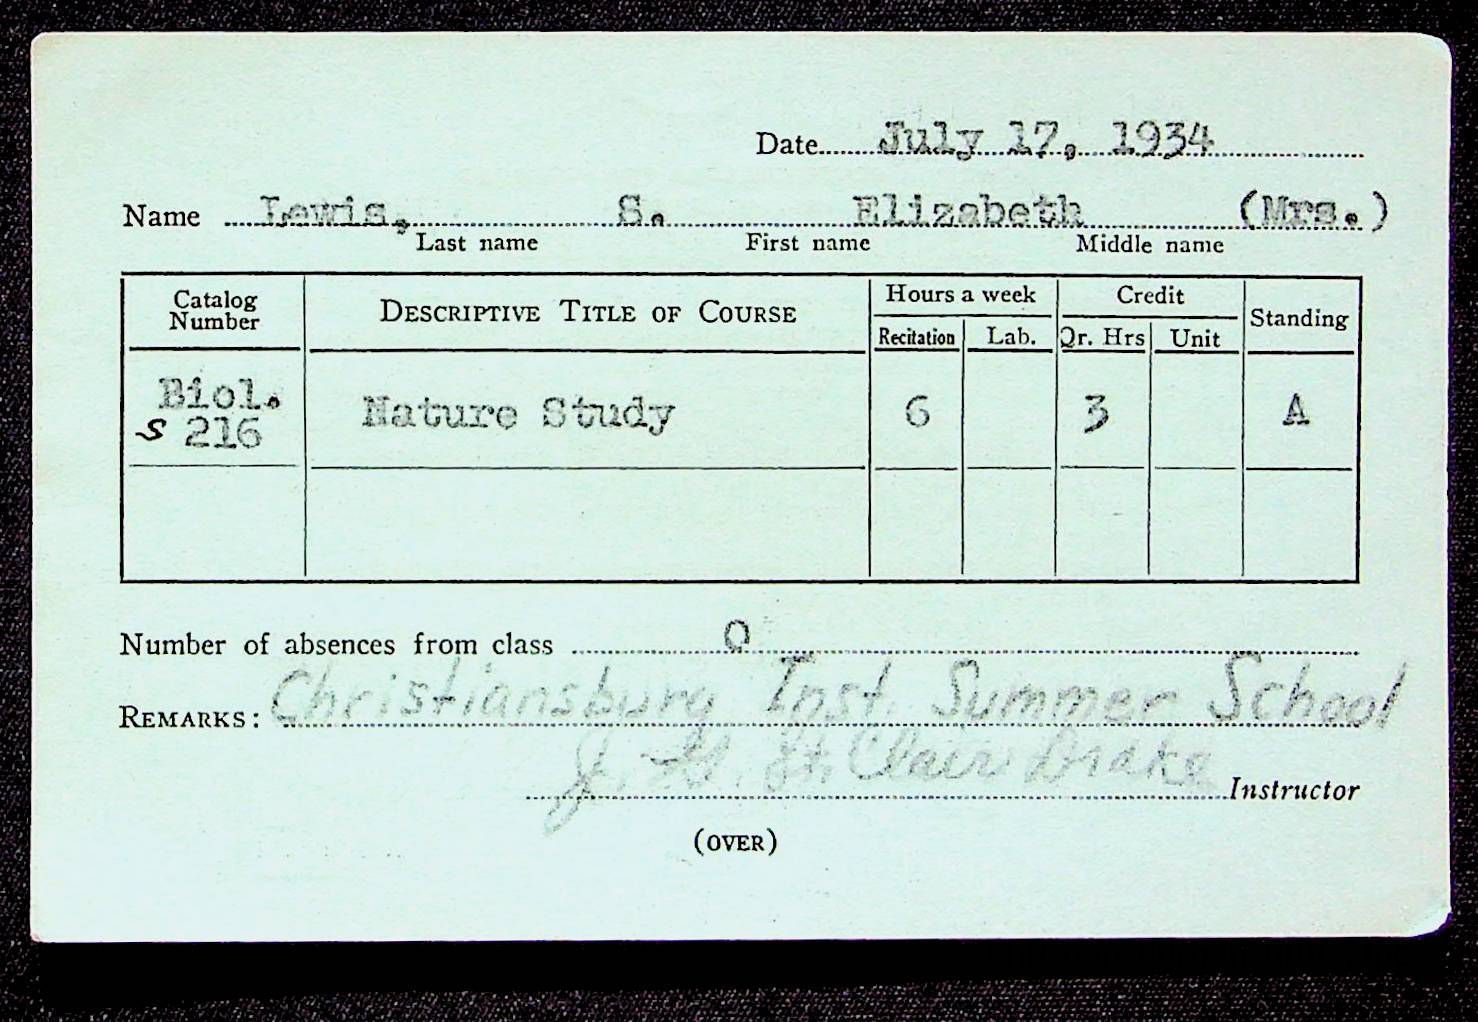 Date July 17, 1934
Name Lewis, S. Elizabeth (Mrs.)
Last name First name Middle name
Catalog Number DESCRIPTIVE TITLE OF COURSE Hours a week Credit Standing
Recitation Lab. Qr. Hrs Unit
Biol. S 216 Nature Study 6 3 A
Number of absences from class 0
REMARKS: Christiansburg Inst. Summer School
J. G. St. Clair Drake Instructor
(OVER)